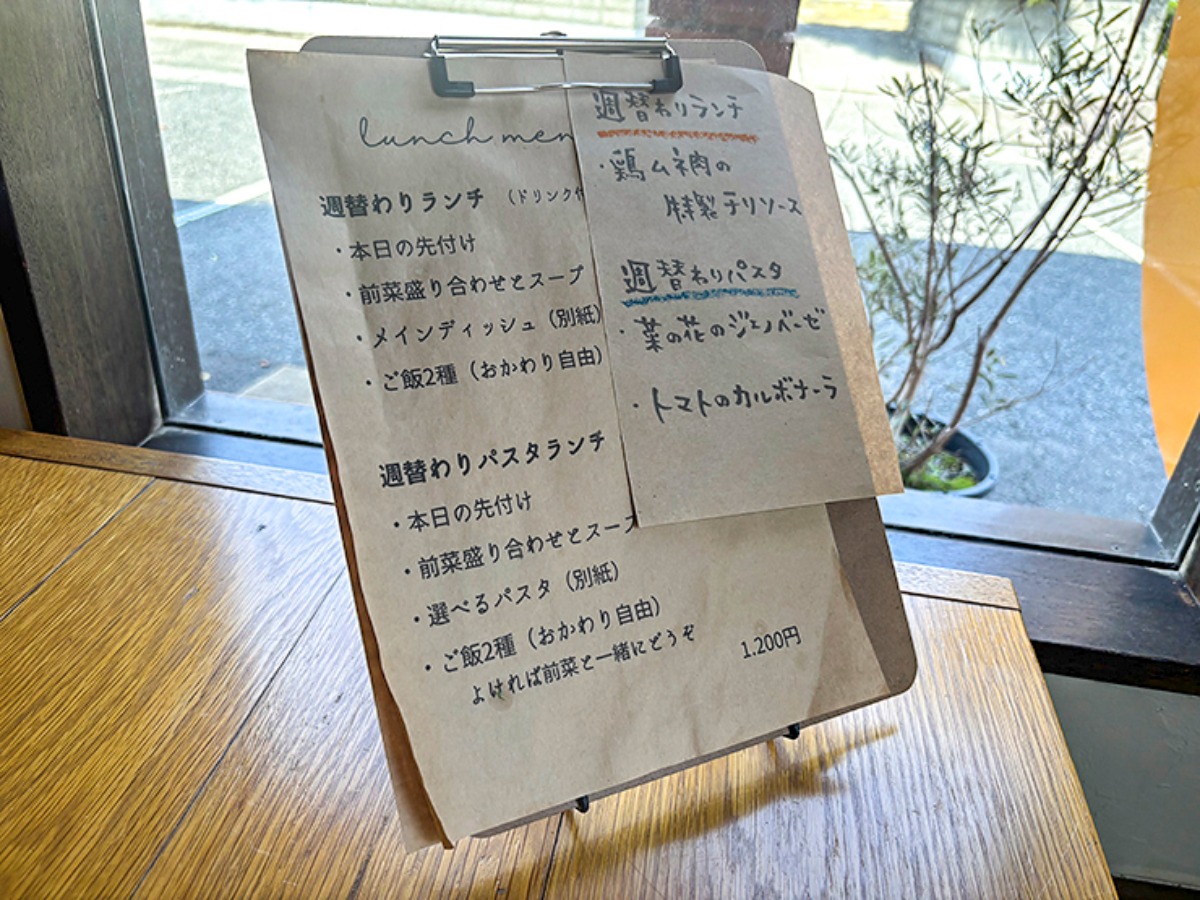 lunch men
週替わりランチ （ドリンク付
・本日の先付け
・前菜盛り合わせとスープ
・メインディッシュ（別紙）
・ご飯2種（おかわり自由）
週替わりパスタランチ
・本日の先付け
・前菜盛り合わせとスープ
・選べるパスタ（別紙）
・ご飯2種（おかわり自由）
よければ前菜と一緒にどうぞ
1.200円
週替わりランチ
・鶏ムネ肉の
特製テリソース
週替わりパスタ
・菜の花のジェノベーゼ
・トマトのカルボナーラ